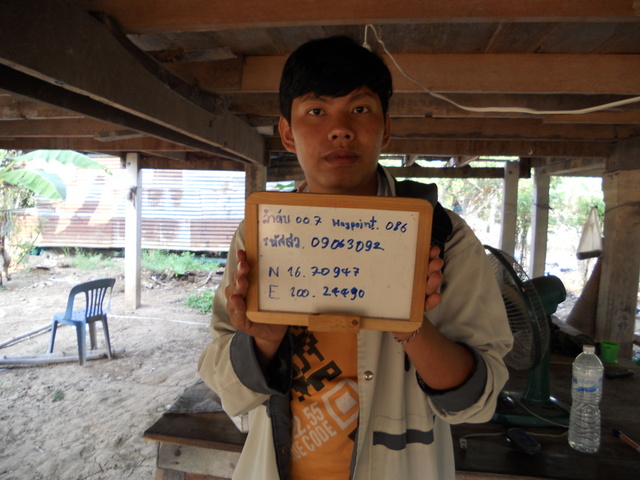 ลำดับ 007 Waypoint. 086
รหัสสว. 09063092
N 16.70947
E 100.24490
2.55
DE CODE